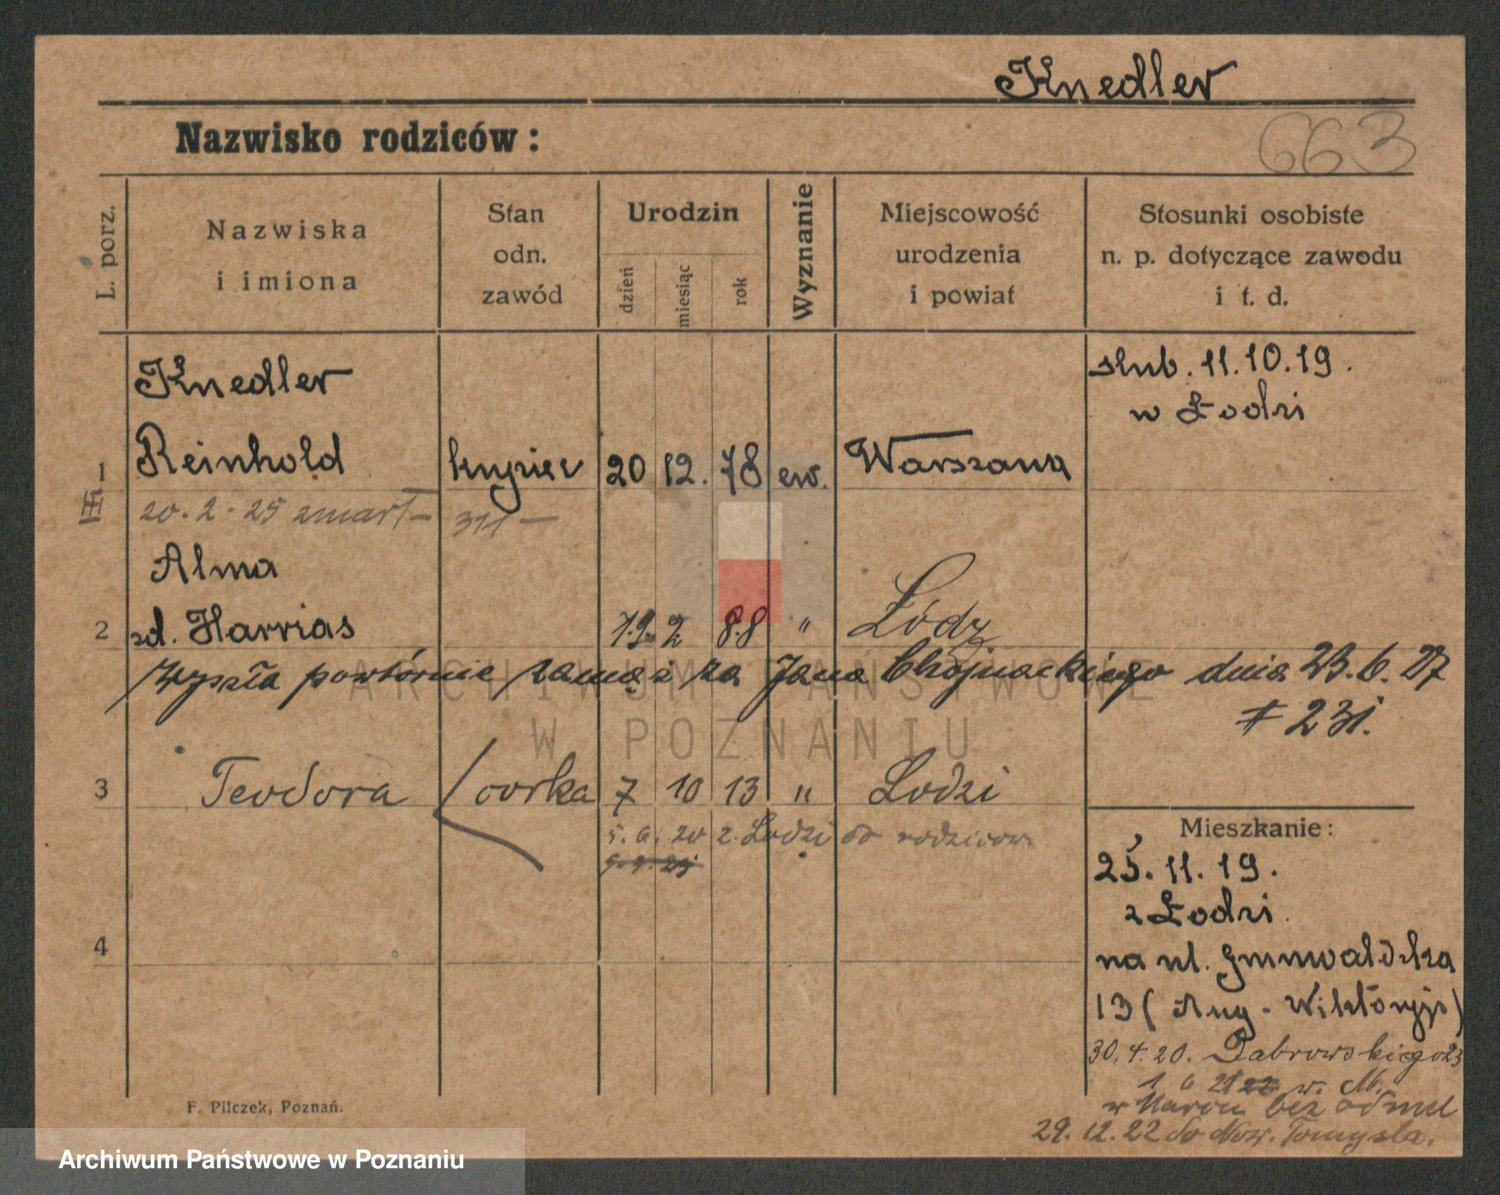 Knedler
Nazwisko rodziców:
663
L. porz.
Nazwiska
i imiona
Stan
odn.
zawód
Urodzin
dzień
miesiąc
rok
Wyznanie
Miejscowość
urodzenia
i powiat
Stosunki osobiste
n. p. dotyczące zawodu
i t. d.
Knedler
ślub. 11.10.19.
w Łodzi
1 Reinhold kupiec 20 12. 78 ew. Warszawa
III 20.2.25 zmarł 311
Alma
2 zd. Harrias 19. 2 88 " Łódź
Wyszła powtórnie zamąż za Jana Chojnackiego dnia 23.6.27
# 231.
3 Teodora córka 7 10 13 " Łodzi
5.6.20 z Łodzi do rodziców
Mieszkanie:
25.11.19.
z Łodzi
4
na ul. Grunwaldzka
13 (Aug-Wiktoryji)
30.4.20. Dąbrowskiego 23
w. M.
bez odmel
29.12.22 do Now. Tomyśla.
F. Pilczek, Poznań.
ARCHIWUM PAŃSTWOWE
W POZNANIU
Archiwum Państwowe w Poznaniu